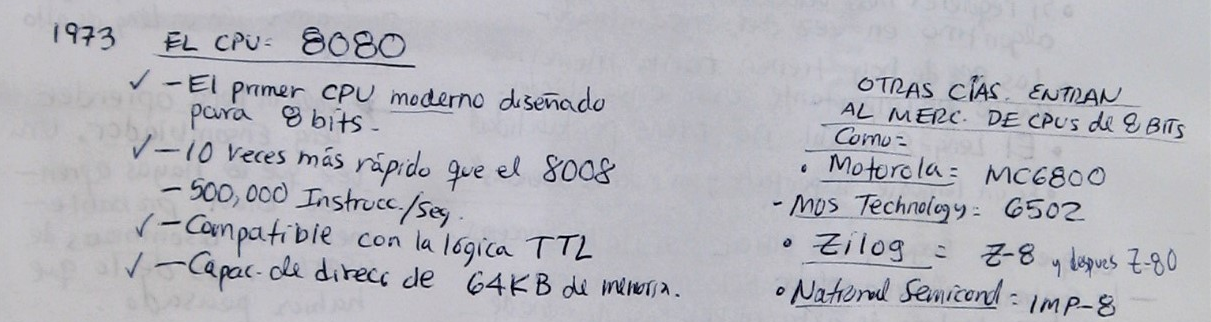 1973 EL CPU: 8080
✓ - El primer CPU moderno diseñado
para 8 bits.
✓ - 10 veces más rápido que el 8008
- 500,000 Instrucc./seg.
✓ - Compatible con la lógica TTL
✓ - Capac. de direcc de 64KB de memoria.
OTRAS CÍAS. ENTRAN
AL MERC. DE CPUs de 8 BITS
Como=
• Motorola= MC6800
- MOS Technology= 6502
• Zilog = Z-8 y despues Z-80
• National Semicond = IMP-8